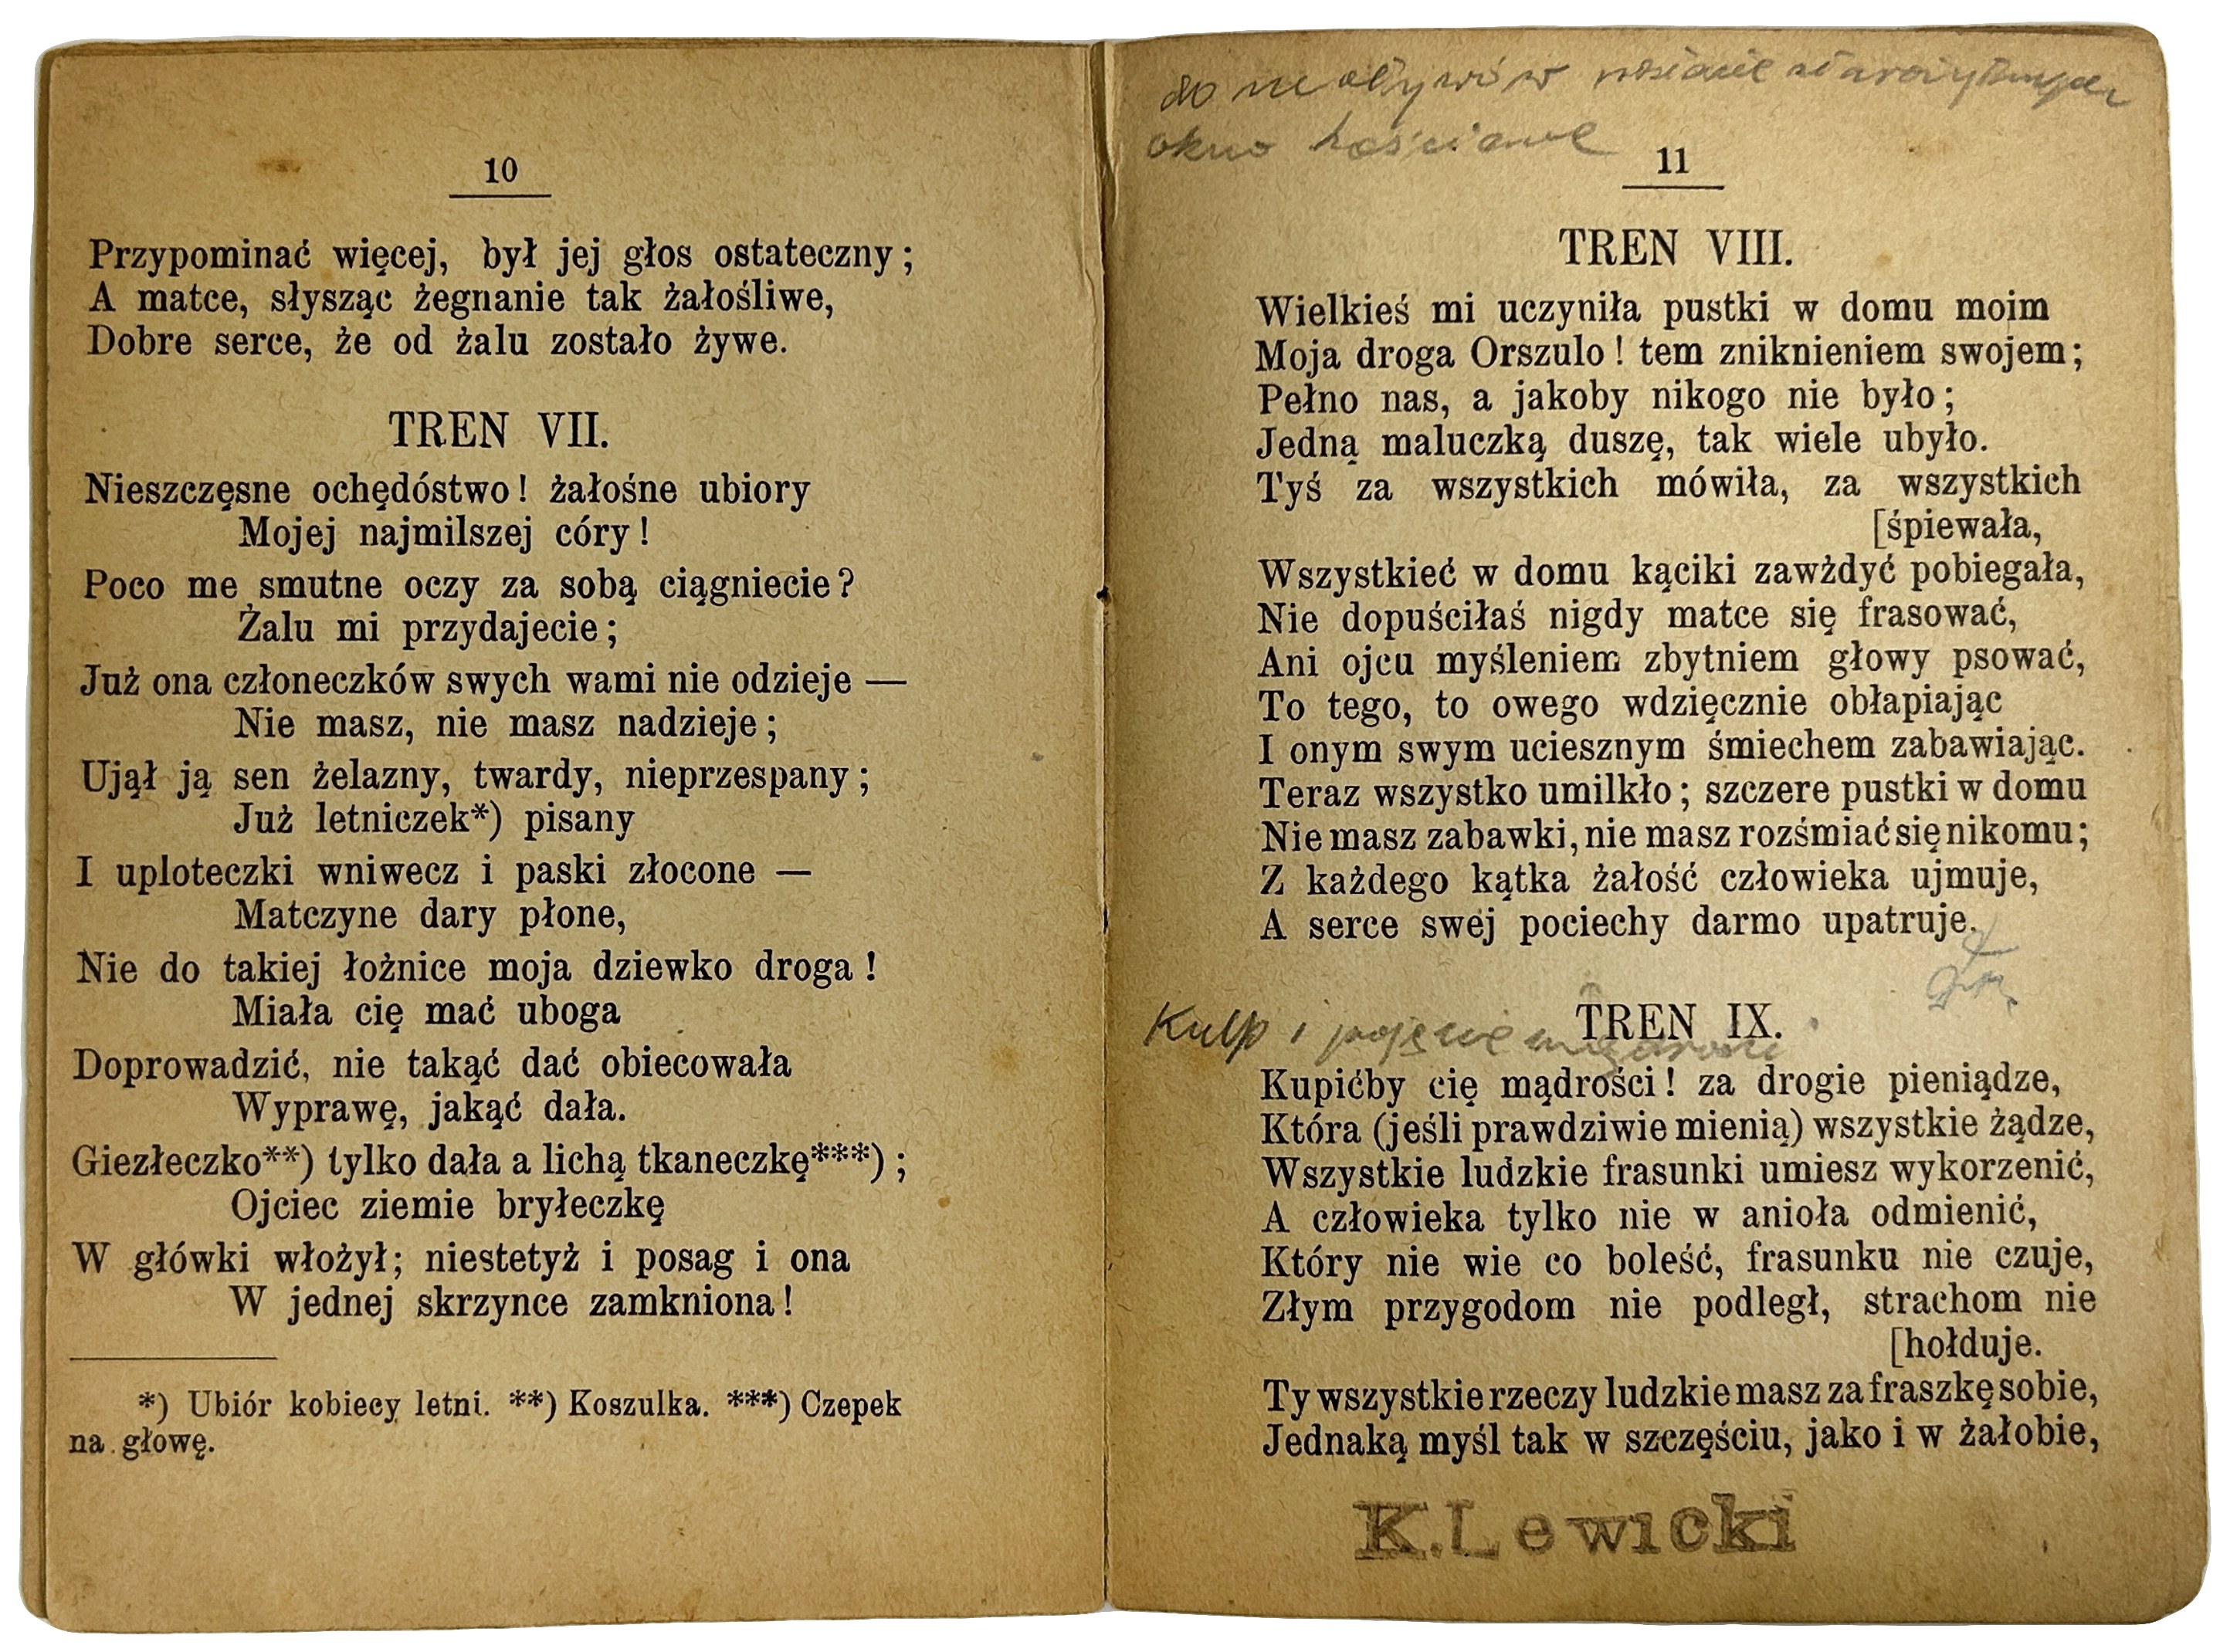 10
Przypominać więcej, był jej głos ostateczny;
A matce, słysząc żegnanie tak żałośliwe,
Dobre serce, że od żalu zostało żywe.
TREN VII.
Nieszczęsne ochędóstwo! żałośne ubiory
Mojej najmilszej córy!
Poco me smutne oczy za sobą ciągniecie?
Żalu mi przydajecie;
Już ona członeczków swych wami nie odzieje —
Nie masz, nie masz nadzieje;
Ujął ją sen żelazny, twardy, nieprzespany;
Już letniczek*) pisany
I uploteczki wniwecz i paski złocone —
Matczyne dary płone,
Nie do takiej łożnice moja dziewko droga!
Miała cię mać uboga
Doprowadzić, nie takąć dać obiecowała
Wyprawę, jakąć dała.
Giezłeczko**) tylko dała a lichą tkaneczkę***);
Ojciec ziemie bryłeczkę
W główki włożył; niestetyż i posag i ona
W jednej skrzynce zamkniona!
*) Ubiór kobiecy letni. **) Koszulka. ***) Czepek
na głowę.
do
okno
11
TREN VIII.
Wielkieś mi uczyniła pustki w domu moim
Moja droga Orszulo! tem zniknieniem swojem;
Pełno nas, a jakoby nikogo nie było;
Jedną maluczką duszę, tak wiele ubyło.
Tyś za wszystkich mówiła, za wszystkich
[śpiewała,
Wszystkieć w domu kąciki zawżdyć pobiegała,
Nie dopuściłaś nigdy matce się frasować,
Ani ojcu myśleniem zbytniem głowy psować,
To tego, to owego wdzięcznie obłapiając
I onym swym uciesznym śmiechem zabawiając.
Teraz wszystko umilkło; szczere pustki w domu
Nie masz zabawki, nie masz rozśmiać się nikomu;
Z każdego kątka żałość człowieka ujmuje,
A serce swej pociechy darmo upatruje.
TREN IX.
Kulp i pojęcie
Kupićby cię mądrości! za drogie pieniądze,
Która (jeśli prawdziwie mienią) wszystkie żądze,
Wszystkie ludzkie frasunki umiesz wykorzenić,
A człowieka tylko nie w anioła odmienić,
Który nie wie co boleść, frasunku nie czuje,
Złym przygodom nie podległ, strachom nie
[hołduje.
Ty wszystkie rzeczy ludzkie masz za fraszkę sobie,
Jednaką myśl tak w szczęściu, jako i w żałobie,
K. Lewicki